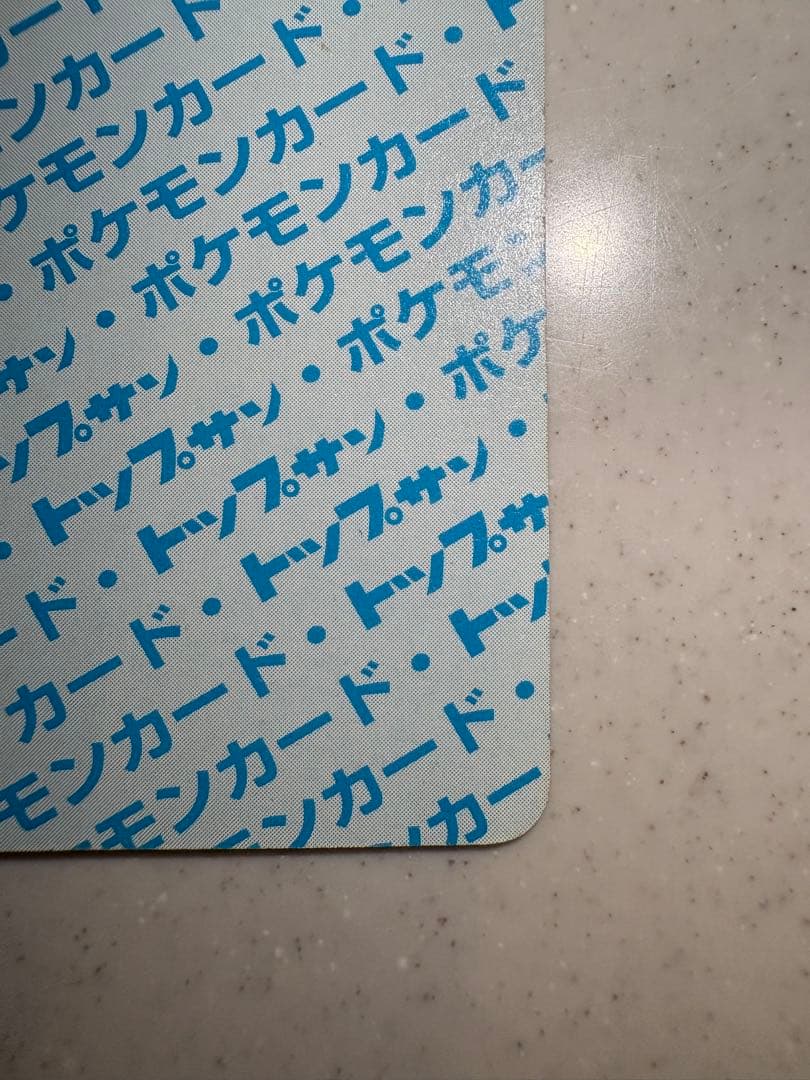 ード
ンカード
ケモンカード・
・ポケモンカード・ト
サン・ポケモンカード
ップサン・ポケモンカー
・トップサン・ポケモン
ード・トップサン・ポケ
カード・トップサン・
モンカード・トップサ
モンカード・トッ
ンカード・
ンカー